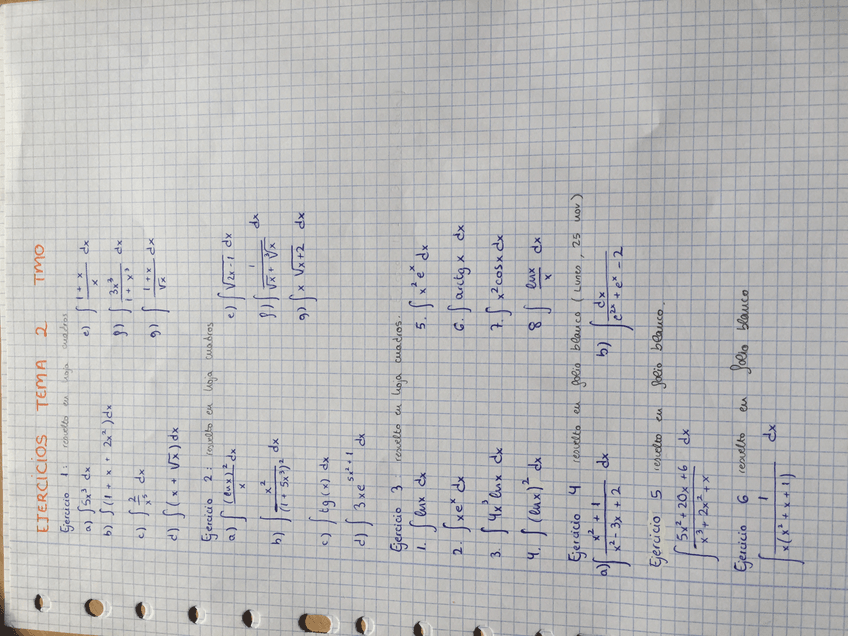 EJERCICIOS TEMA 2 TMO
Ejercicio 1: resuelto en hoja cuadros
a) ∫5x³ dx e) ∫ (1+x)/x dx
b) ∫(1 + x + 2x²)dx f) ∫ 3x³/(1+x³) dx
c) ∫ 2/x⁵ dx g) ∫ (1+x)/√x dx
d) ∫(x + √x) dx
Ejercicio 2: resuelto en hoja cuadros
a) ∫ (lnx)²/x dx e) ∫√(2x-1) dx
b) ∫ x²/(1+5x³)² f) ∫ 1/(√x + ∛x) dx
c) ∫ tg(x) dx g) ∫ x √(x+2) dx
d) ∫ 3xe^(5x²+1) dx
Ejercicio 3 resuelto en hoja cuadros.
1. ∫ lnx dx 5. ∫ x² eˣ dx
2. ∫ xeˣ dx 6. ∫ arctg x dx
3. ∫ 4x³ lnx dx 7. ∫ x² cosx dx
4. ∫ (lnx)² dx 8 ∫ lnx/x dx
Ejercicio 4 resuelto en folio blanco (Lunes, 25 nov)
a) ∫ (x²+1)/(x²-3x+2) dx b) ∫ dx/(e²ˣ + eˣ - 2)
Ejercicio 5 resuelto en folio blanco.
∫ (5x²+20x+6)/(x³+2x²+x) dx
Ejercicio 6 resuelto en folio blanco
∫ 1/(x(x²+x+1)) dx